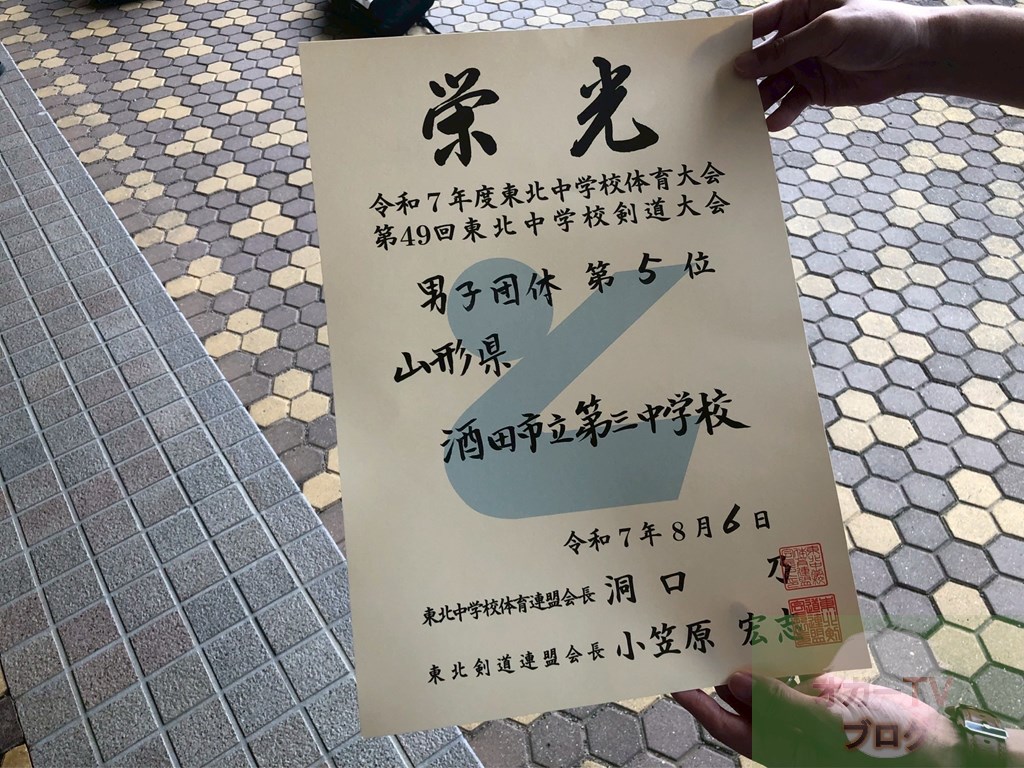 栄光
令和7年度東北中学校体育大会
第49回東北中学校剣道大会
男子団体 第5位
山形県
酒田市立第三中学校
令和7年8月6日
東北中学校体育連盟会長 洞口 乃
東北剣道連盟会長 小笠原 宏志
TV
ブログ